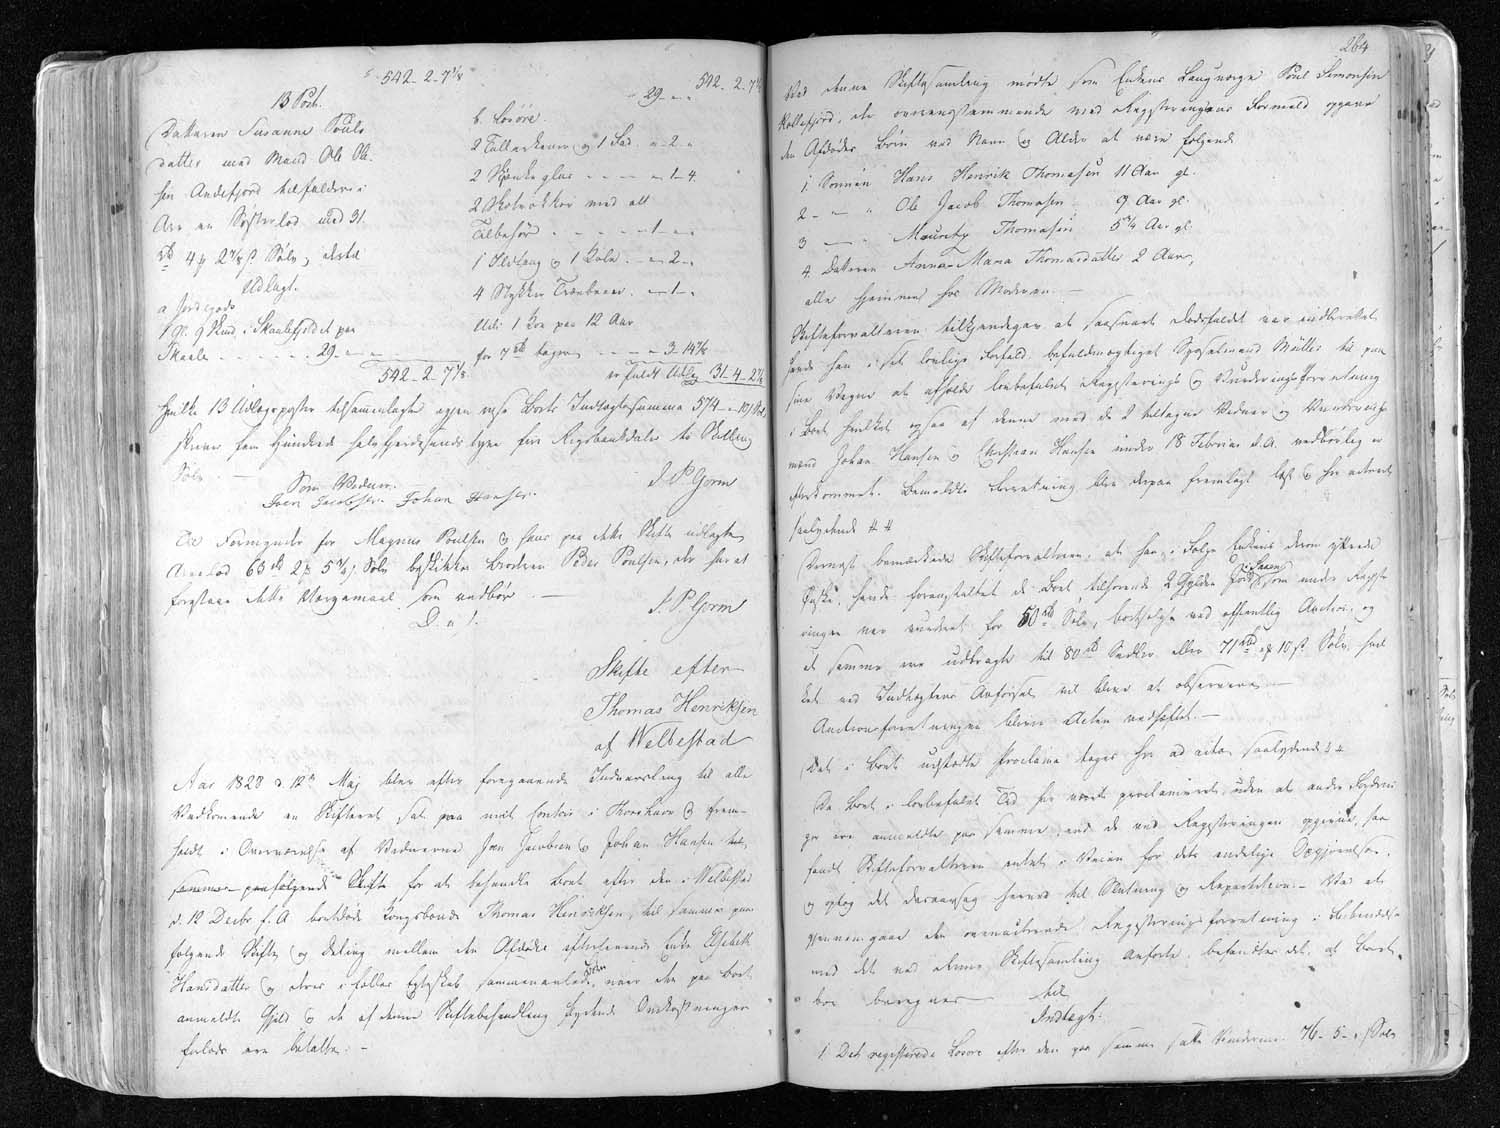 542 - 2 - 7 1/8
13 Post.
Datteren Susanne Pouls
datter med Mand Ole Ol-
sen Andefjord tilfalder i
Arv en Søsterlod med 31
rd 4 ƒ 2 7/8 s Sølv, derfor
Udlagt.
a Jordegods
1 M. 9 Skind i Skaalefjeldet paa
Skaale - - - - - 29 - " - "
542 - 2 - 7 1/8
542 - 2 - 7 1/8
29 - " - "
b. Løsøre
2 Tallerkener og 1 Fad - " - 2 - "
2 Skjenkeglas - - - - " - 1 - 4
2 Skotrokker med alt
Tilbehør - - - - - " - 1 - "
1 Ildtang og 1 Kole - " - 2 - "
4 Stykker - " - 1 - "
Udi 1 Koe paa 12 Aar
for 7 rd tagen - - - 3 - 14 7/8
er fuldt Udlæg 31 - 4 - 2 7/8
hvilke 13 Udlægsposter tilsammenlagte Boets Indtægtssumma 574 - " - 10 s Sølv
skriver fem Hundrede halvfjerdesindstyve fire Rigsbankdaler ti Skilling
Sølv. —
Som Vidner.
Joen Jacobsen Johan Hansen.
J. P. Gorm
Til Formynder for Magnus Poulsen og hans paa dette Skifte udlagte
Arvelod 63 rd 2 ƒ 5 3/4 s Sølv beskikkes Broderen Peder Poulsen, der har at
forestaae dette Værgemaal som vedbør. —
J. P. Gorm
D. u. s.
Skifte efter
Thomas Henriksen
af Welbestad
Aar 1828 d. 12te Maj blev efter foregaaende Indvarsling til alle
Vedkommende en Skifteret sat paa mit Contoir i Thorshavn og frem-
holdt i Overværelse af Vidnerne Joen Jacobsen og Johan Hansen til
sammes paafølgende Skifte for at behandle Boet efter den i Welbestad
d. 12 Decbr f. A. bortdøde Kongsbonde Thomas Henriksen, til sammes paa-
følgende Skifte og Deling mellem den Afdødes efterlevende Enke Elsebeth
Hansdatter og deres i fælles Egteskab sammenavlede Børn, naar den paa Boet
anmeldte Gjeld og de af denne Skiftebehandling flydende Omkostninger
forlods ere betalte. —
264
Ved denne Skiftesamling mødte som Enkens Laugværge Poul Simonsen
Kollefjord, der overeensstemmende med Registreringens Formeld opgave
den Afdødes Børn ved Navn og Alder at være følgende
1. Sønnen Hans Henrik Thomasen 11 Aar gl.
2 - " - " Ole Jacob Thomasen 9 Aar gl.
3 - " - " Mouritz Thomasen 5 3/4 Aar gl.
4. Datteren Anna Maria Thomasdatter 2 Aar,
alle hjemme hos Moderen. —
Skifteforvalteren tilkjendegav at saasnart Dødsfaldet var indberettet
havde han i sit lovlige Forfald befuldmægtiget Sysselmand Müller til paa
sine Vegne at afholde lovbefalet Registrerings og Vurderings Forretning
i Boet hvilket ogsaa af denne med de 2 tiltagne Vidner og Vurderings-
mænd Johan Hansen og Christian Hansen under 18 Februar d. A. vedbørlig er
efterkommet. Bemeldte Forretning blev derpaa fremlagt læst og her acteret
saalydende # #
Dernæst bemærkede Skifteforvalteren, at han i Følge Enkens derom yttrede
Ønske, havde foranstaltet de Boet tilhørende 2 Gylden Jord i Saxen som under Registre-
ringen var vurderet for 50 rd Sølv, bortsolgt ved offentlig Auction, og
at samme ere udbragte til 80 rd Sedler eller 71 rd " ƒ 10 s Sølv, hvil-
ket ved Indtægtens Anførsel vil blive at observere —
Auctionsforretningen bliver Acten vedhæftet. —
Det i Boet udstædte Proclama tages her ad acta saalydende # #
Da Boet i lovbefalet Tid har været proclameret, uden at andre Fordrin-
ger ere anmeldte paa samme, end de ved Registreringen opgivne, saa
fandt Skifteforvalteren intet i Veien for dets endelige Opgjørelse,
og optog det derovenfor herved til Slutning og Repartition. — Ved at
gjennemgaae den ommeldte Registreringsforretning i Forbindelse
med det ved denne Skiftesamling anførte, befandtes det, at Boet
bør beregnes til
Indtægt:
1. Det registrerede Løsøre efter den paa samme satte Vurdering 76 - 5 - " s Sølv